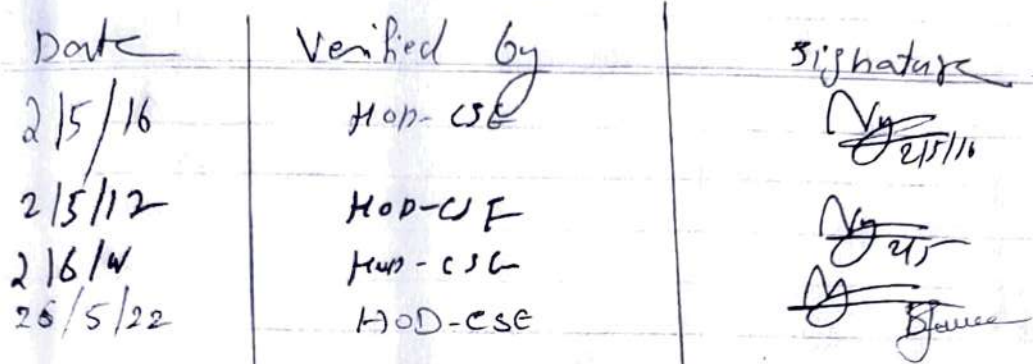 Date Verified by Signature
2/5/16 HOD-CSE 2/5/16
2/5/12 HOD-CSE 2/5
2/6/ HOD-CSE
26/5/22 HOD-CSE